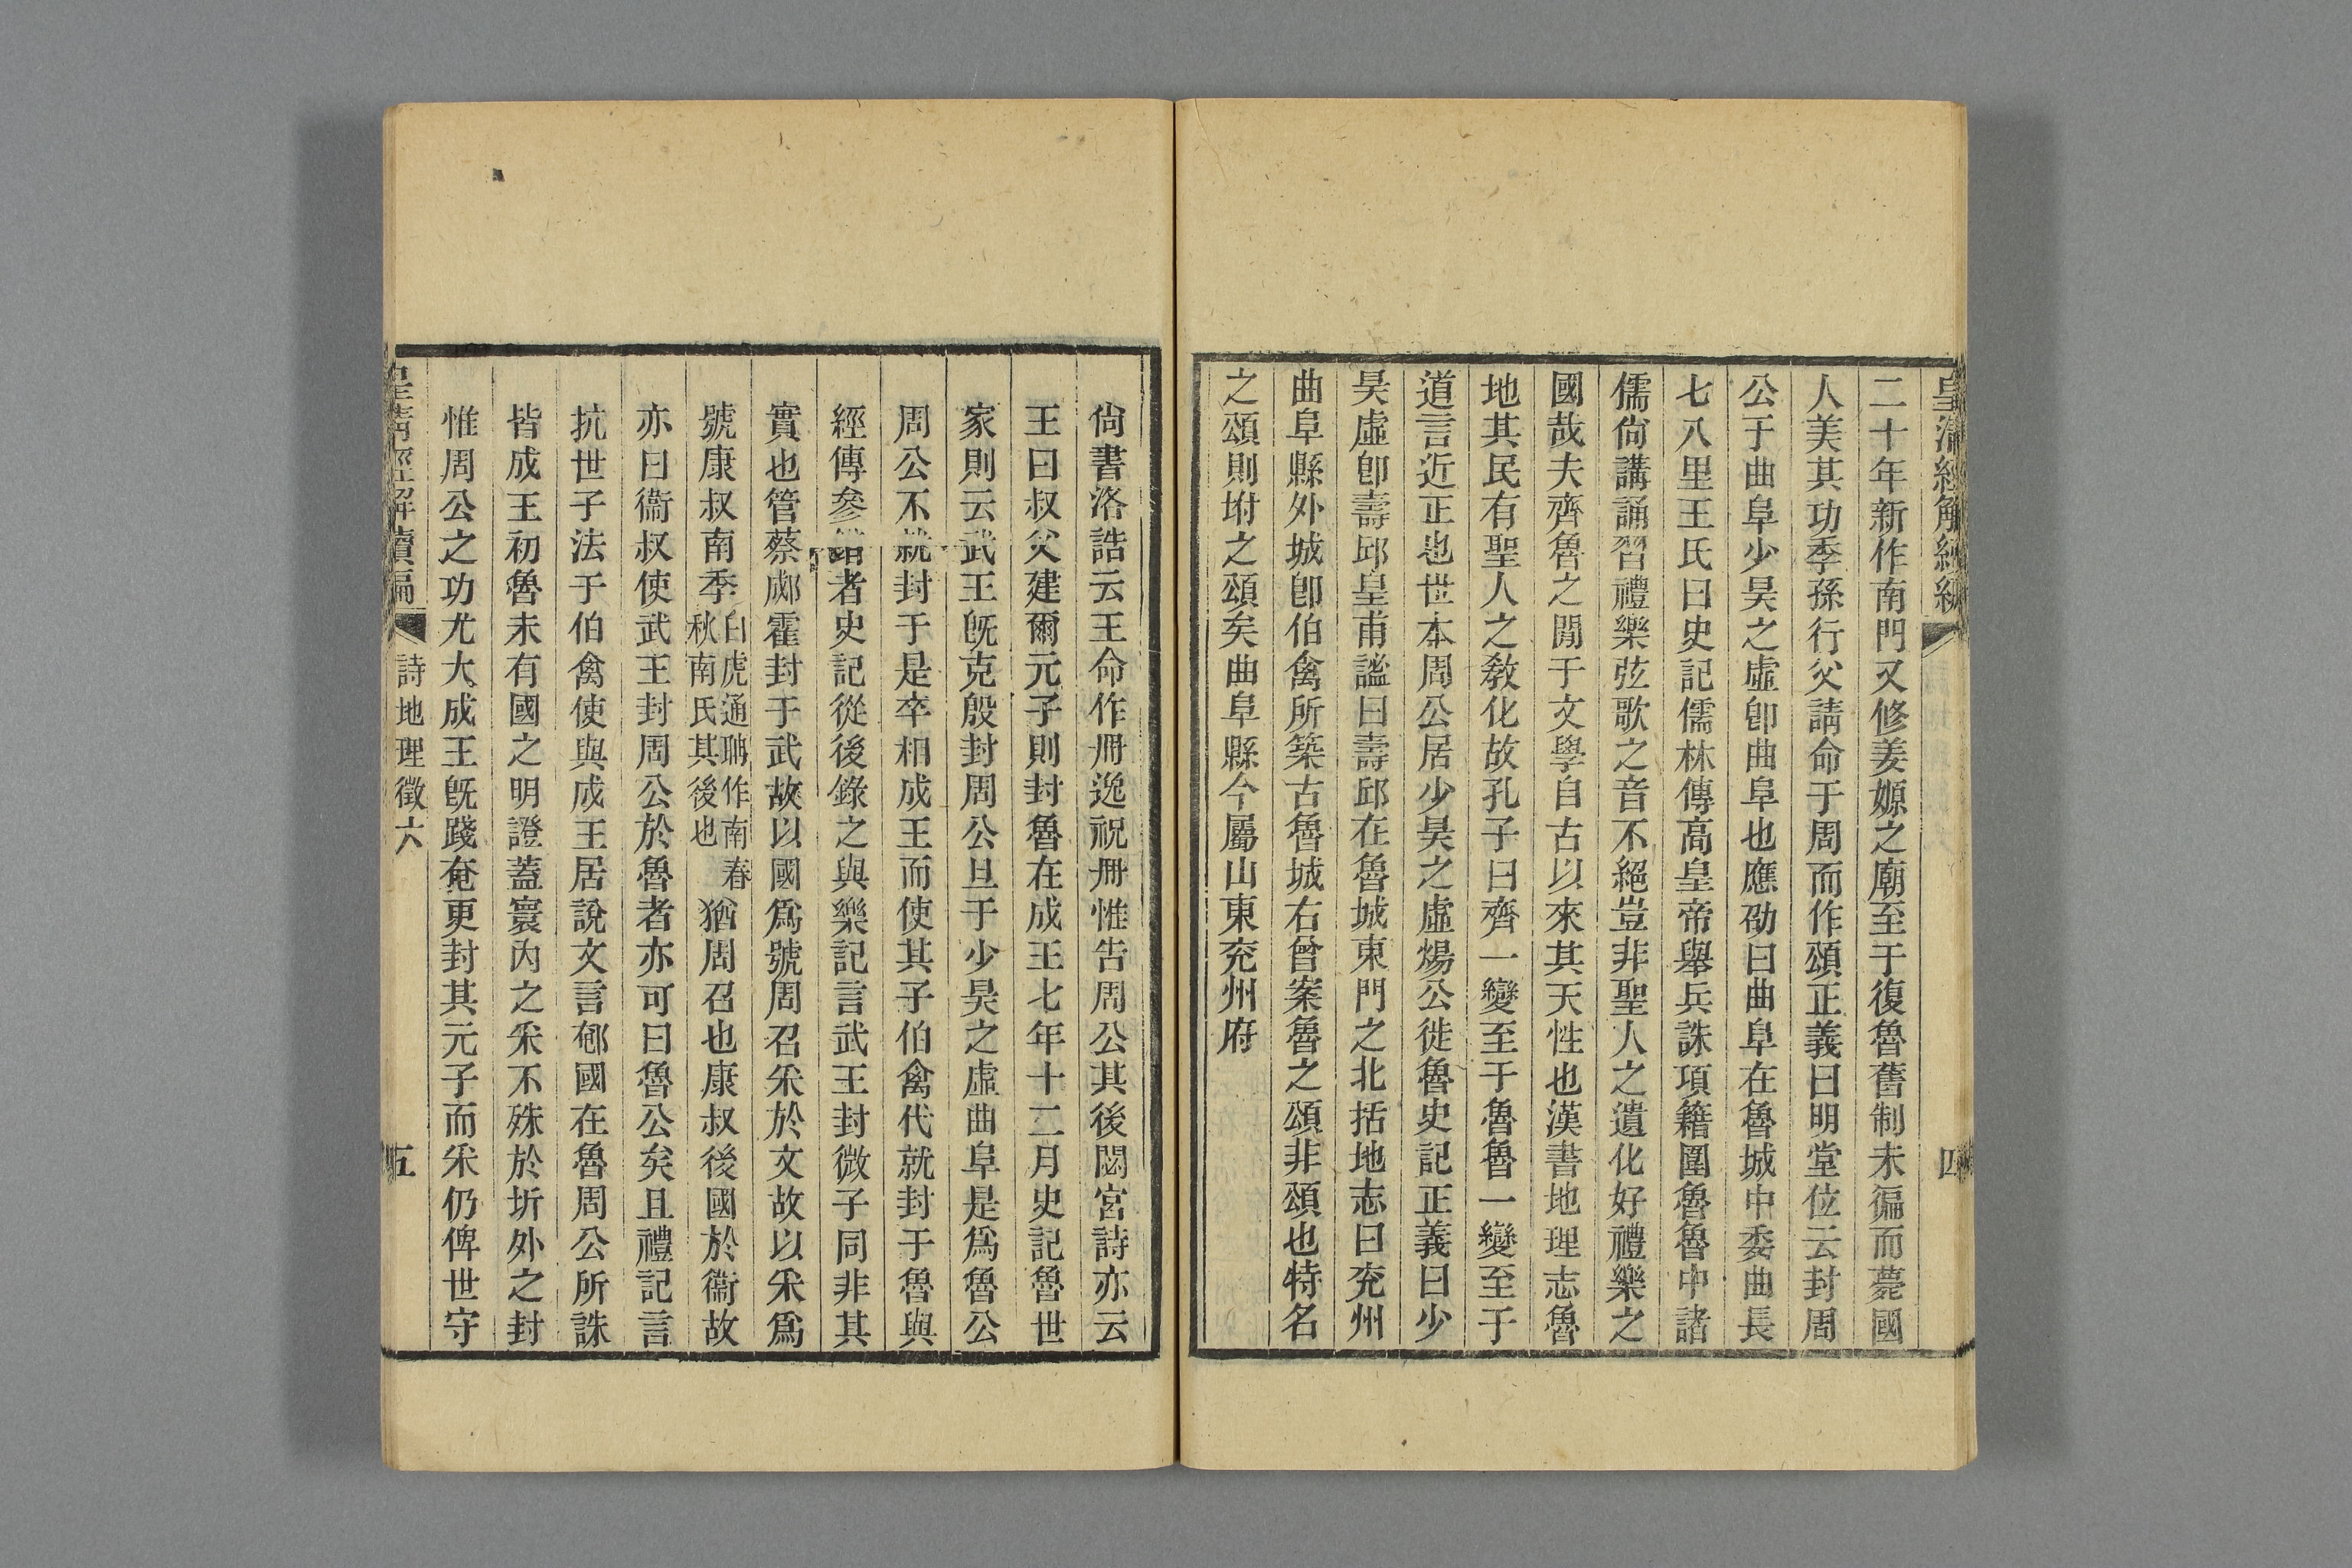 皇清經解續
四
二十年新作南門又修姜嫄之廟至于復魯舊制未徧而薨國
人美其功季孫行父請命于周而作頌正義曰明堂位云封周
公于曲阜少昊之虛卽曲阜也應劭曰曲阜在魯城中委曲長
七八里王氏曰史記儒林傳高皇帝舉兵誅項籍圍魯魯中諸
儒尙講誦習禮樂弦歌之音不絕豈非聖人之遺化好禮樂之
國哉夫齊魯之閒于文學自古以來其天性也漢書地理志魯
地其民有聖人之敎化故孔子曰齊一變至于魯魯一變至于
道言近正也世本周公居少昊之虛煬公徙魯史記正義曰少
昊虛卽壽邱皇甫謐曰壽邱在魯城東門之北括地志曰兗州
曲阜縣外城卽伯禽所築古魯城右曾案魯之頌非頌也特名
之頌則坿之頌矣曲阜縣今屬山東兗州府
尙書洛誥云王命作冊逸祝冊惟告周公其後閟宮詩亦云
王曰叔父建爾元子則封魯在成王七年十二月史記魯世
家則云武王旣克殷封周公旦于少昊之虛曲阜是爲魯公
周公不就封于是卒相成王而使其子伯禽代就封于魯與
經傳參錯者史記從後錄之與樂記言武王封微子同非其
實也管蔡郕霍封于武故以國爲號周召采於文故以采爲
號康叔南季白虎通聃作南春秋南氏其後也猶周召也康叔後國於衞故
亦曰衞叔使武王封周公於魯者亦可曰魯公矣且禮記言
抗世子法于伯禽使與成王居說文言郁國在魯周公所誅
皆成王初魯未有國之明證蓋寰內之采不殊於圻外之封
惟周公之功尤大成王旣踐奄更封其元子而采仍俾世守
皇淸經解續編
詩地理徵六
五